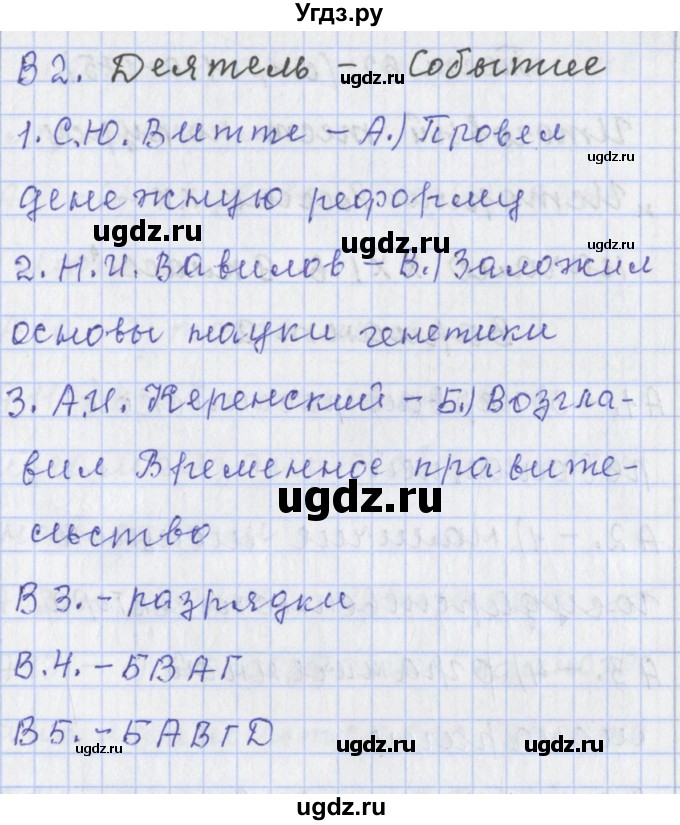 Угдз.ру
В 2. Деятель – Событие
ugdz.ru
1. С.Ю. Витте – А.) Провел
ugdz.ru
денежную реформу
ugdz.ru ugdz.ru ugdz.ru
2. Н.И. Вавилов – В.) Заложил
основы науки генетики
3. А.И. Керенский – Б.) Возгла-
ugdz.ru
вил Временное правите-
ugdz.ru
льство
В 3. – разрядки
ugdz.ru
В.4. – БВАГ
В 5. – БАВГД
ugdz.ru ugdz.ru ugdz.ru
ugdz.ru